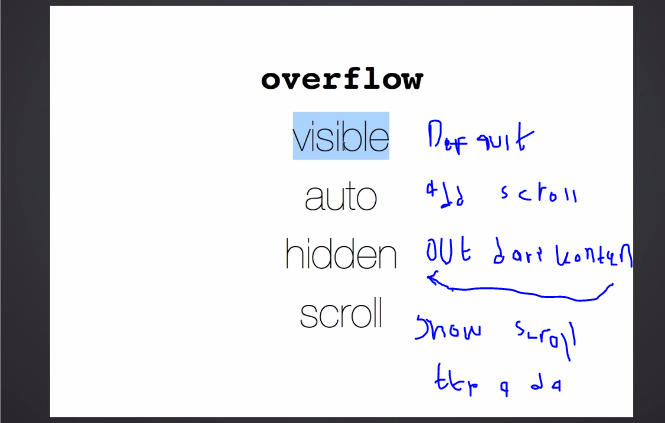 overflow
visible Default
auto add scroll
hidden OUt dari konten
scroll show scroll
ttp ada